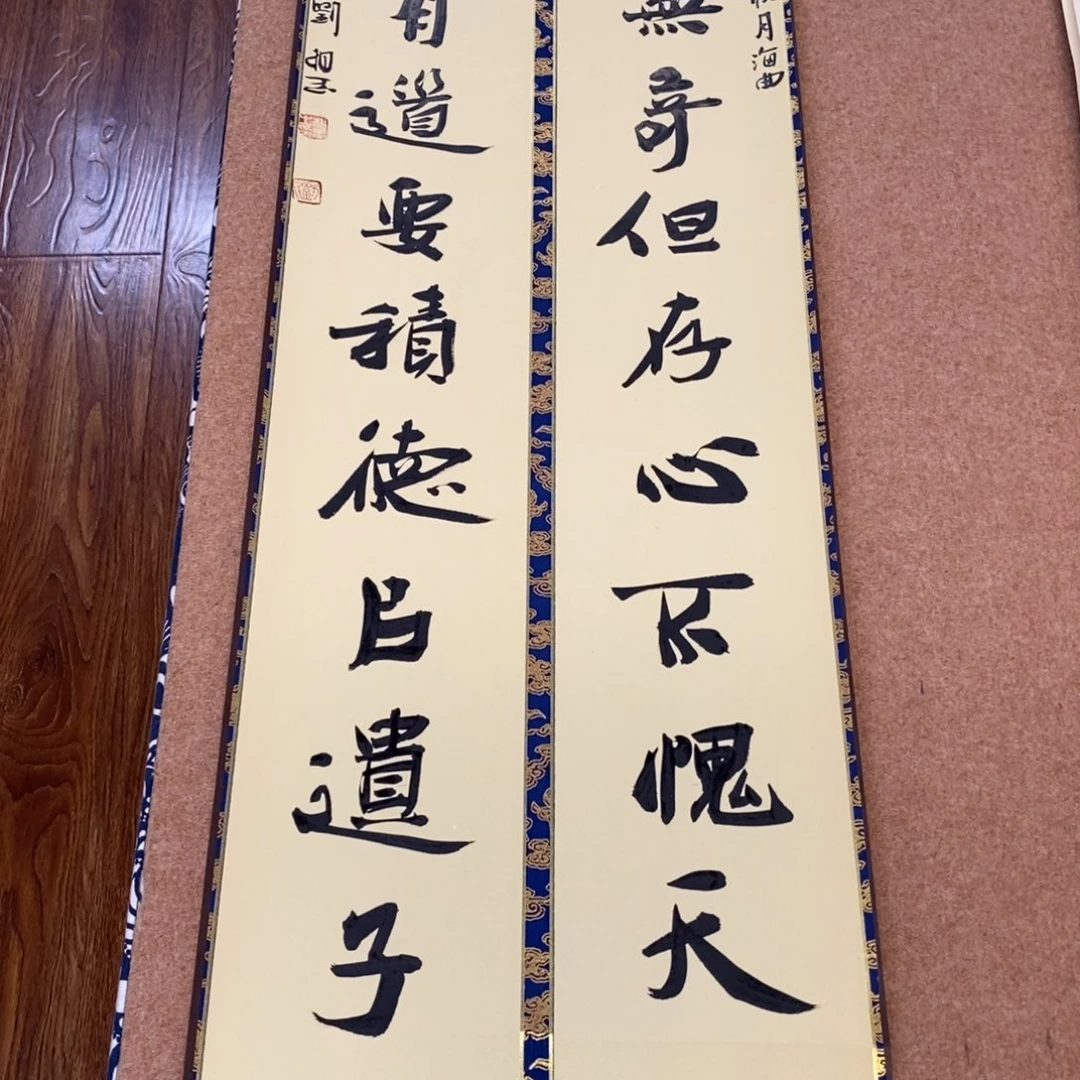 月海曲
無奇但存心不愧天
有道要積德㠯遺子
劉